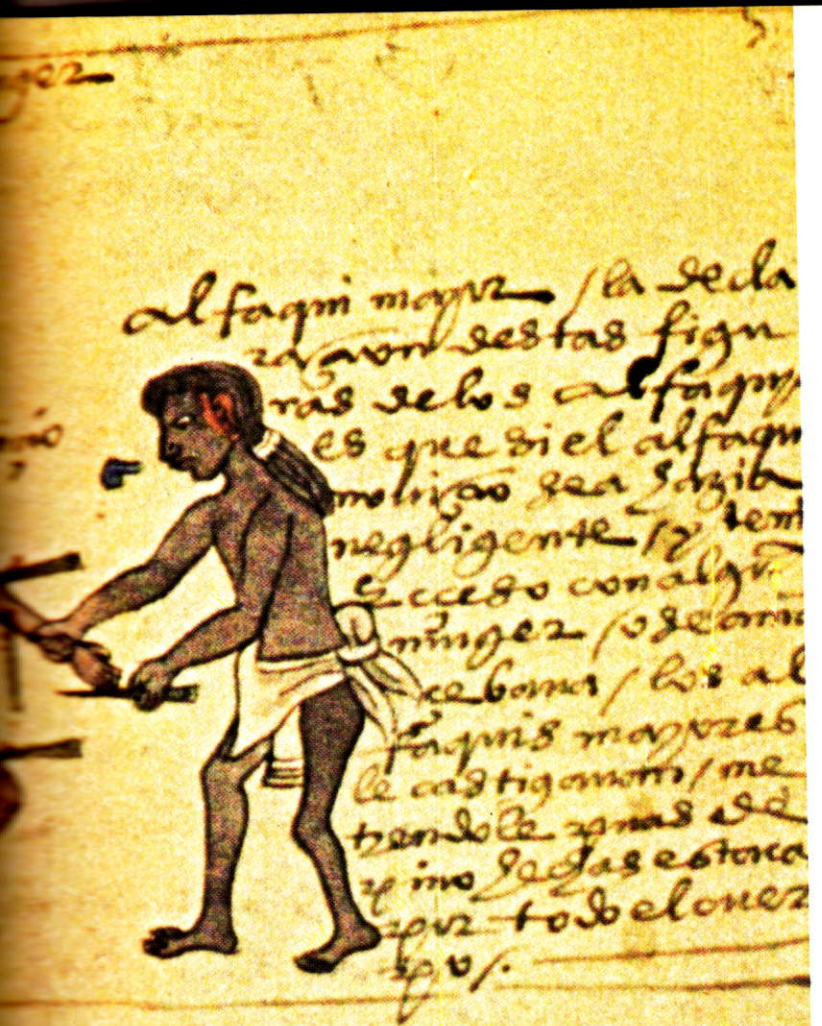 ger
alfaqui mayor / la decla
raçion destas figu
ras de los alfaquis
es que si el alfaqui
noviçio sea hazia
negligente / y teni
eçceso con algun
muger / o de ama
çebama / los al
faquis mayores
le castigavan / me
tiendole puas de
pino hechas estaca
por todo el cuer
po /.